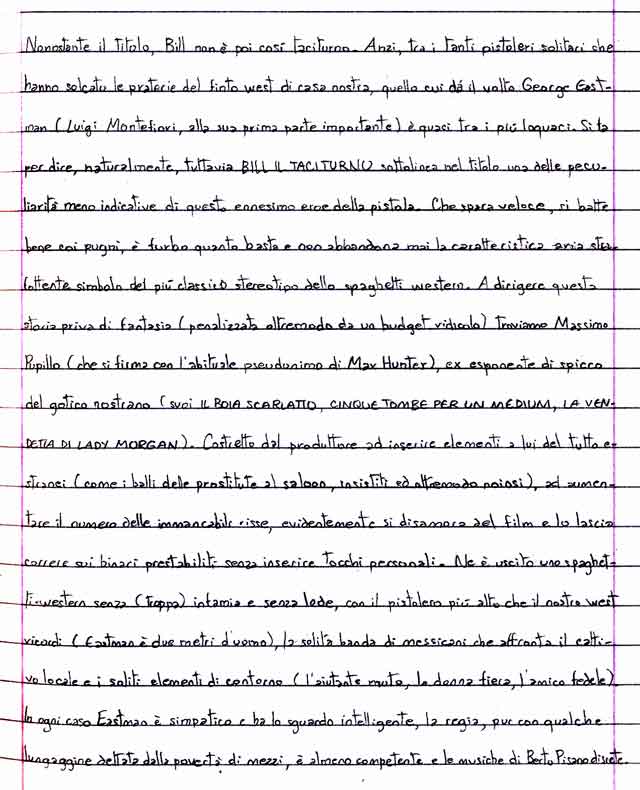 Nonostante il titolo, Bill non è poi così taciturno. Anzi, tra i tanti pistoleri solitari che
hanno solcato le praterie del finto west di casa nostra, quello cui dà il volto George East-
man (Luigi Montefiori, alla sua prima parte importante) è quasi tra i più loquaci. Si fa
per dire, naturalmente, tuttavia BILL IL TACITURNO sottolinea nel titolo una delle pecu-
liarità meno indicative di questo ennesimo eroe della pistola. Che spara veloce, si batte
bene coi pugni, è furbo quanto basta e non abbandona mai la caratteristica aria stra-
fottente simbolo del più classico stereotipo dello spaghetti western. A dirigere questa
storia priva di fantasia (penalizzata oltremodo da un budget ridicolo) troviamo Massimo
Pupillo (che si firma con l'abituale pseudonimo di Max Hunter), ex esponente di spicco
del gotico nostrano (suoi IL BOIA SCARLATTO, CINQUE TOMBE PER UN MEDIUM, LA VEN-
DETTA DI LADY MORGAN). Costretto dal produttore ad inserire elementi a lui del tutto e-
stranei (come i balli delle prostitute al saloon, insistiti ed oltremodo noiosi), ad aumen-
tare il numero delle immancabili risse, evidentemente si disamora del film e lo lascia
correre sui binari prestabiliti senza inserire tocchi personali. Ne è uscito uno spaghet-
ti-western senza (troppa) infamia e senza lode, con il pistolero più alto che il nostro west
ricordi (Eastman è due metri d'uomo), la solita banda di messicani che affronta il catti-
vo locale e i soliti elementi di contorno (l'aiutante muto, la donna fiera, l'amico fedele).
In ogni caso Eastman è simpatico e ha lo sguardo intelligente, la regia, pur con qualche
lungaggine dettata dalla povertà di mezzi, è almeno competente e le musiche di Berto Pisano discrete.